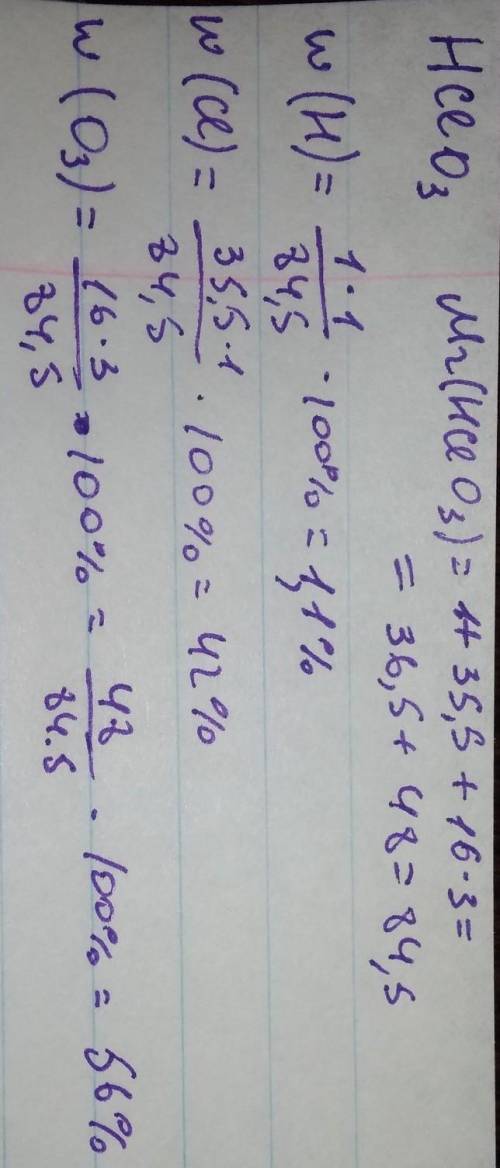 HClO₃ Mr(HClO₃) = 1+ 35,5 + 16·3 =
= 36,5 + 48 = 84,5
w(H) = 1·1/84,5 · 100% = 1,1%
w(Cl) = 35,5·1/84,5 · 100% = 42%
w(O₃) = 16·3/84,5 · 100% = 48/84.5 · 100% = 56%